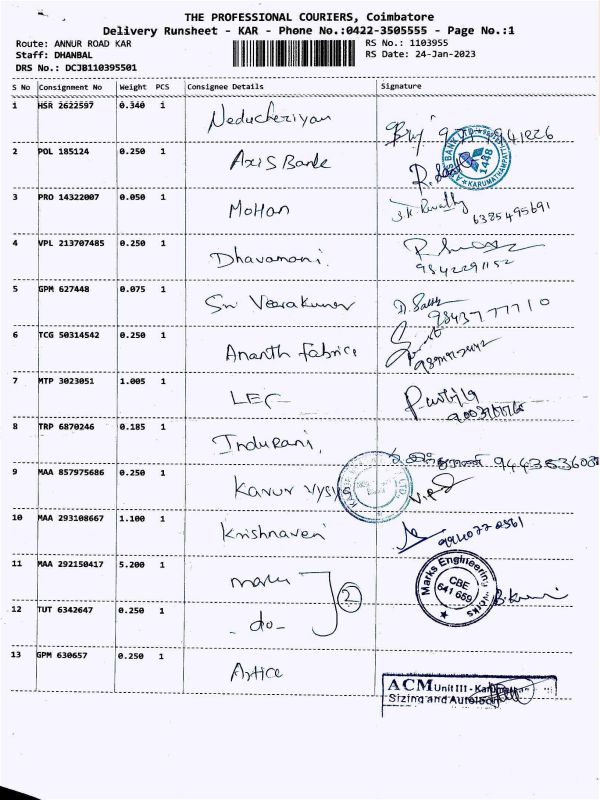 THE PROFESSIONAL COURIERS, Coimbatore
Delivery Runsheet - KAR - Phone No.:0422-3505555 - Page No.:1
Route: ANNUR ROAD KAR RS No.: 1103955
Staff: DHANBAL RS Date: 24-Jan-2023
DRS No.: DCJB110395501
S No Consignment No Weight PCS Consignee Details Signature
1 HSR 2622597 0.340 1 Neducheziyan
2 POL 185124 0.250 1 Axis Bank
3 PRO 14322007 0.050 1 Mohan 6385495691
4 VPL 213707485 0.250 1 Dhavamani. 9842291152
5 GPM 627448 0.075 1 Sri Veerakumar 9843777710
6 TCG 50314542 0.250 1 Ananth fabrics
7 MTP 3023051 1.005 1
8 TRP 6870246 0.185 1 Indurani.
9 MAA 857975686 0.250 1 Karur Vysya
10 MAA 293108667 1.100 1 Krishnaveni
11 MAA 292150417 5.200 1 2
Marks Engineering Works
CBE
641 659
12 TUT 6342647 0.250 1 -do-
13 GPM 630657 0.250 1
ACM Unit III -
Sizing and